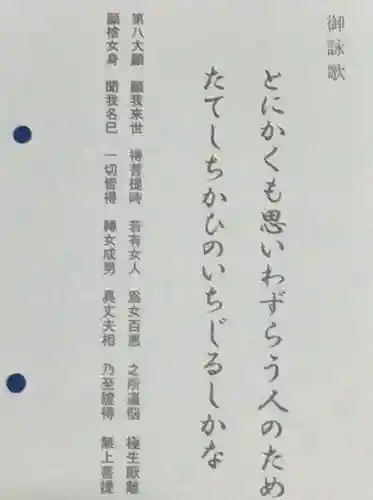 御詠歌
とにかくも思いわずらう人のため
たてしちかひのいちじるしかな
第八大願 願我來世 得菩提時 若有女人 為女百惡 之所逼惱 極生厭離
願捨女身 聞我名已 一切皆得 轉女成男 具丈夫相 乃至證得 無上菩提